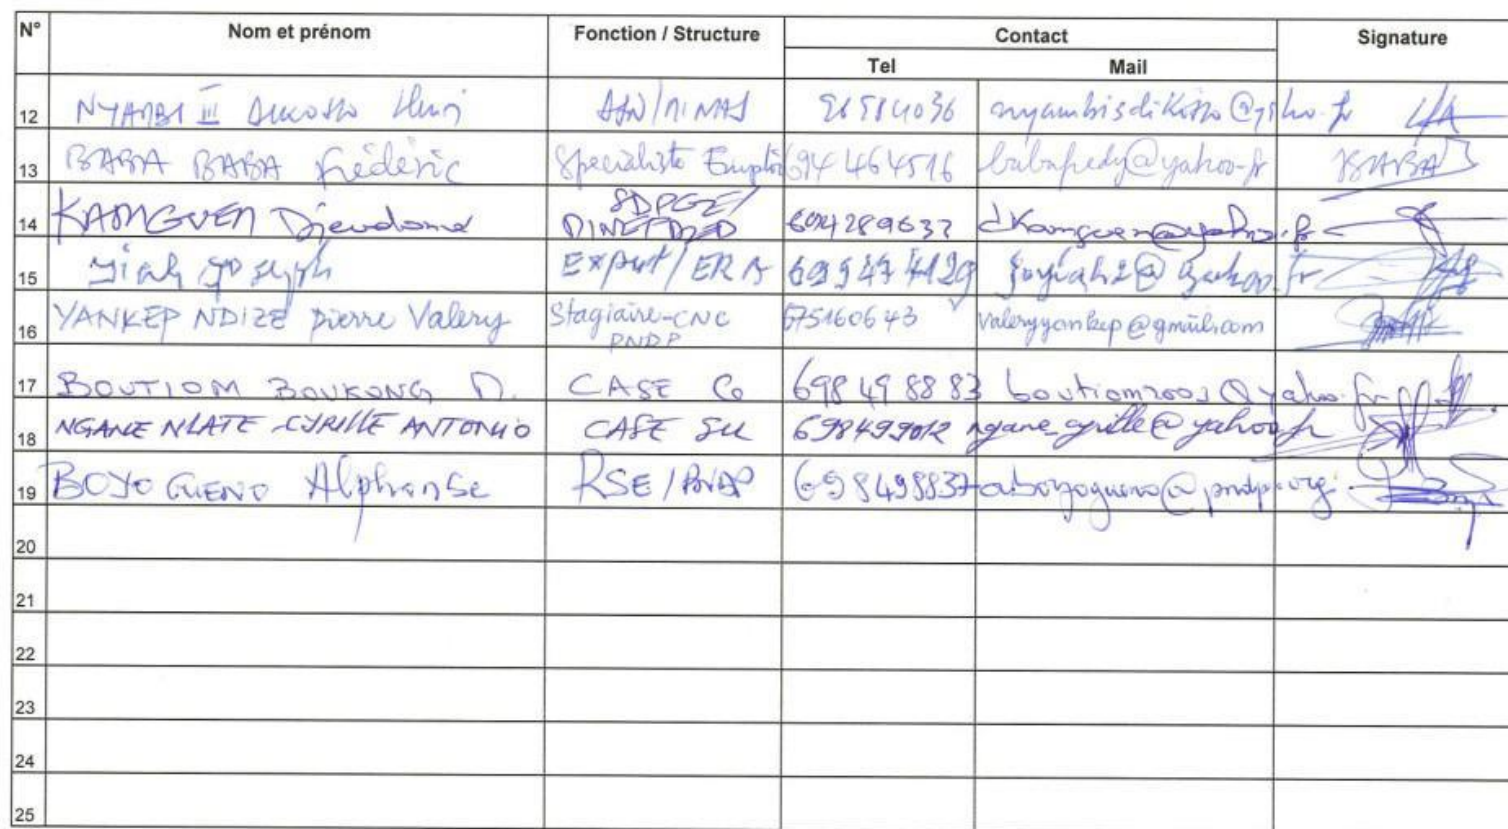 N° Nom et prénom Fonction / Structure Contact Signature
Tel Mail
12 NYAMBI III DIKOSSO
13 BABA BABA Frédéric Spécialiste 694464516 babafredy@yahoo.fr BABA
14 KAMGUEN Dieudonné SDPGE/
MINEPDED 694289637 dkamguen@yahoo.fr
15 Yiah Joseph Expert/ERA 699474129 joyiah2@yahoo.fr
16 YANKEP NDIZE Pierre Valery Stagiaire-CNC 675160643 valeryyankep@gmail.com
PNDP
17 BOUTIOM BOUKONG D. CASE Co 698 49 88 83 boutiom2001@yahoo.fr
18 NGANE NLATE CYRILLE ANTONIO CASE SU 698499012 ngane_cyrille@yahoo.fr
19 BOYOGUENO Alphonse RSE/PNDP 698498837 aboyogueno@pndp.org
20
21
22
23
24
25